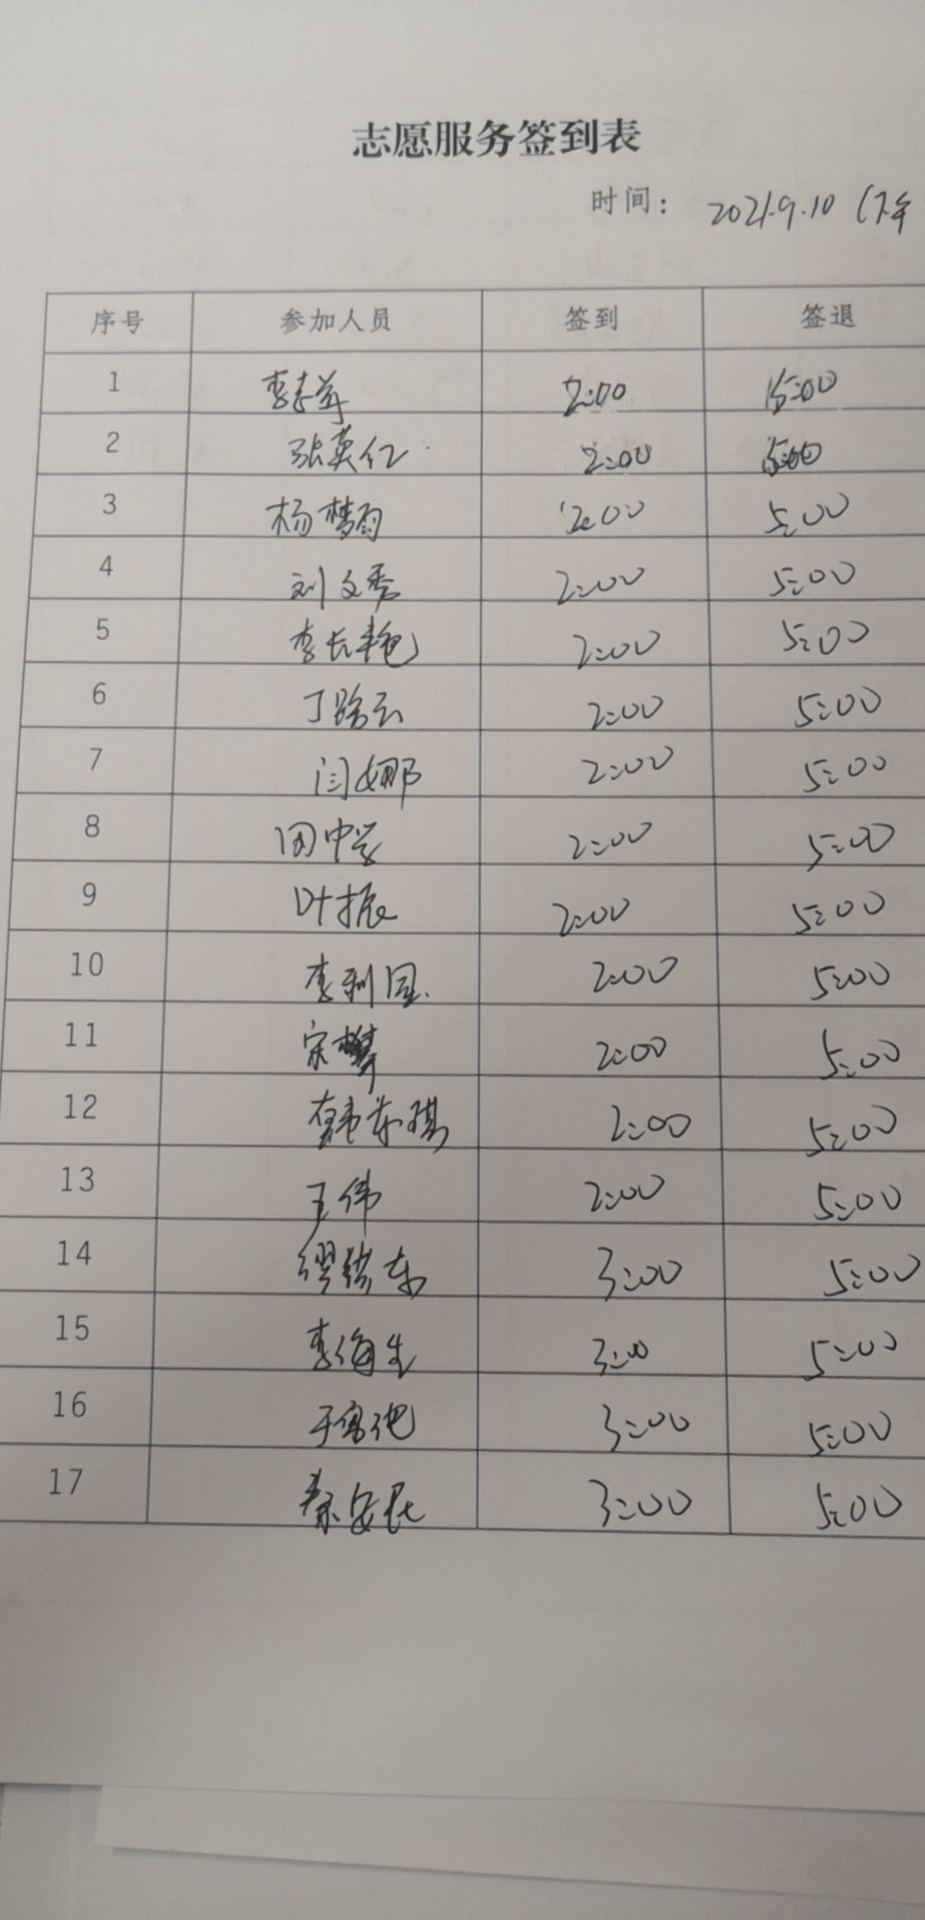 志愿服务签到表
时间： 2021.9.10（下午
序号 参加人员 签到 签退
1 李 2:00 5:00
2 张英仁 2:00 5:00
3 杨梦雨 2:00 5:00
4 刘文秀 2:00 5:00
5 李长艳 2:00 5:00
6 丁 云 2:00 5:00
7 闫娜 2:00 5:00
8 田中 2:00 5:00
9 叶振 2:00 5:00
10 李利国 2:00 5:00
11 宋 2:00 5:00
12 韩 琪 2:00 5:00
13 王伟 2:00 5:00
14 缪 东 3:00 5:00
15 李海生 3:00 5:00
16 于 3:00 5:00
17 秦安民 3:00 5:00